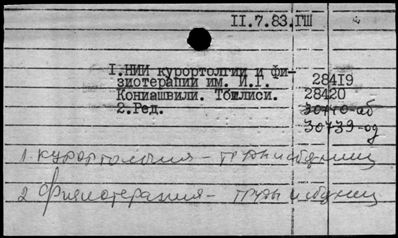 II.7.83.ГШ
I.НИИ курортолгии и фи-
зиотерапии им. И.Г.
28419
Кониашвили. Тбилиси.
28420
2.Ред.
30740-аб
30739-од
1. курортология – труды и сборники
2 Физиотерапия – труды и сборники